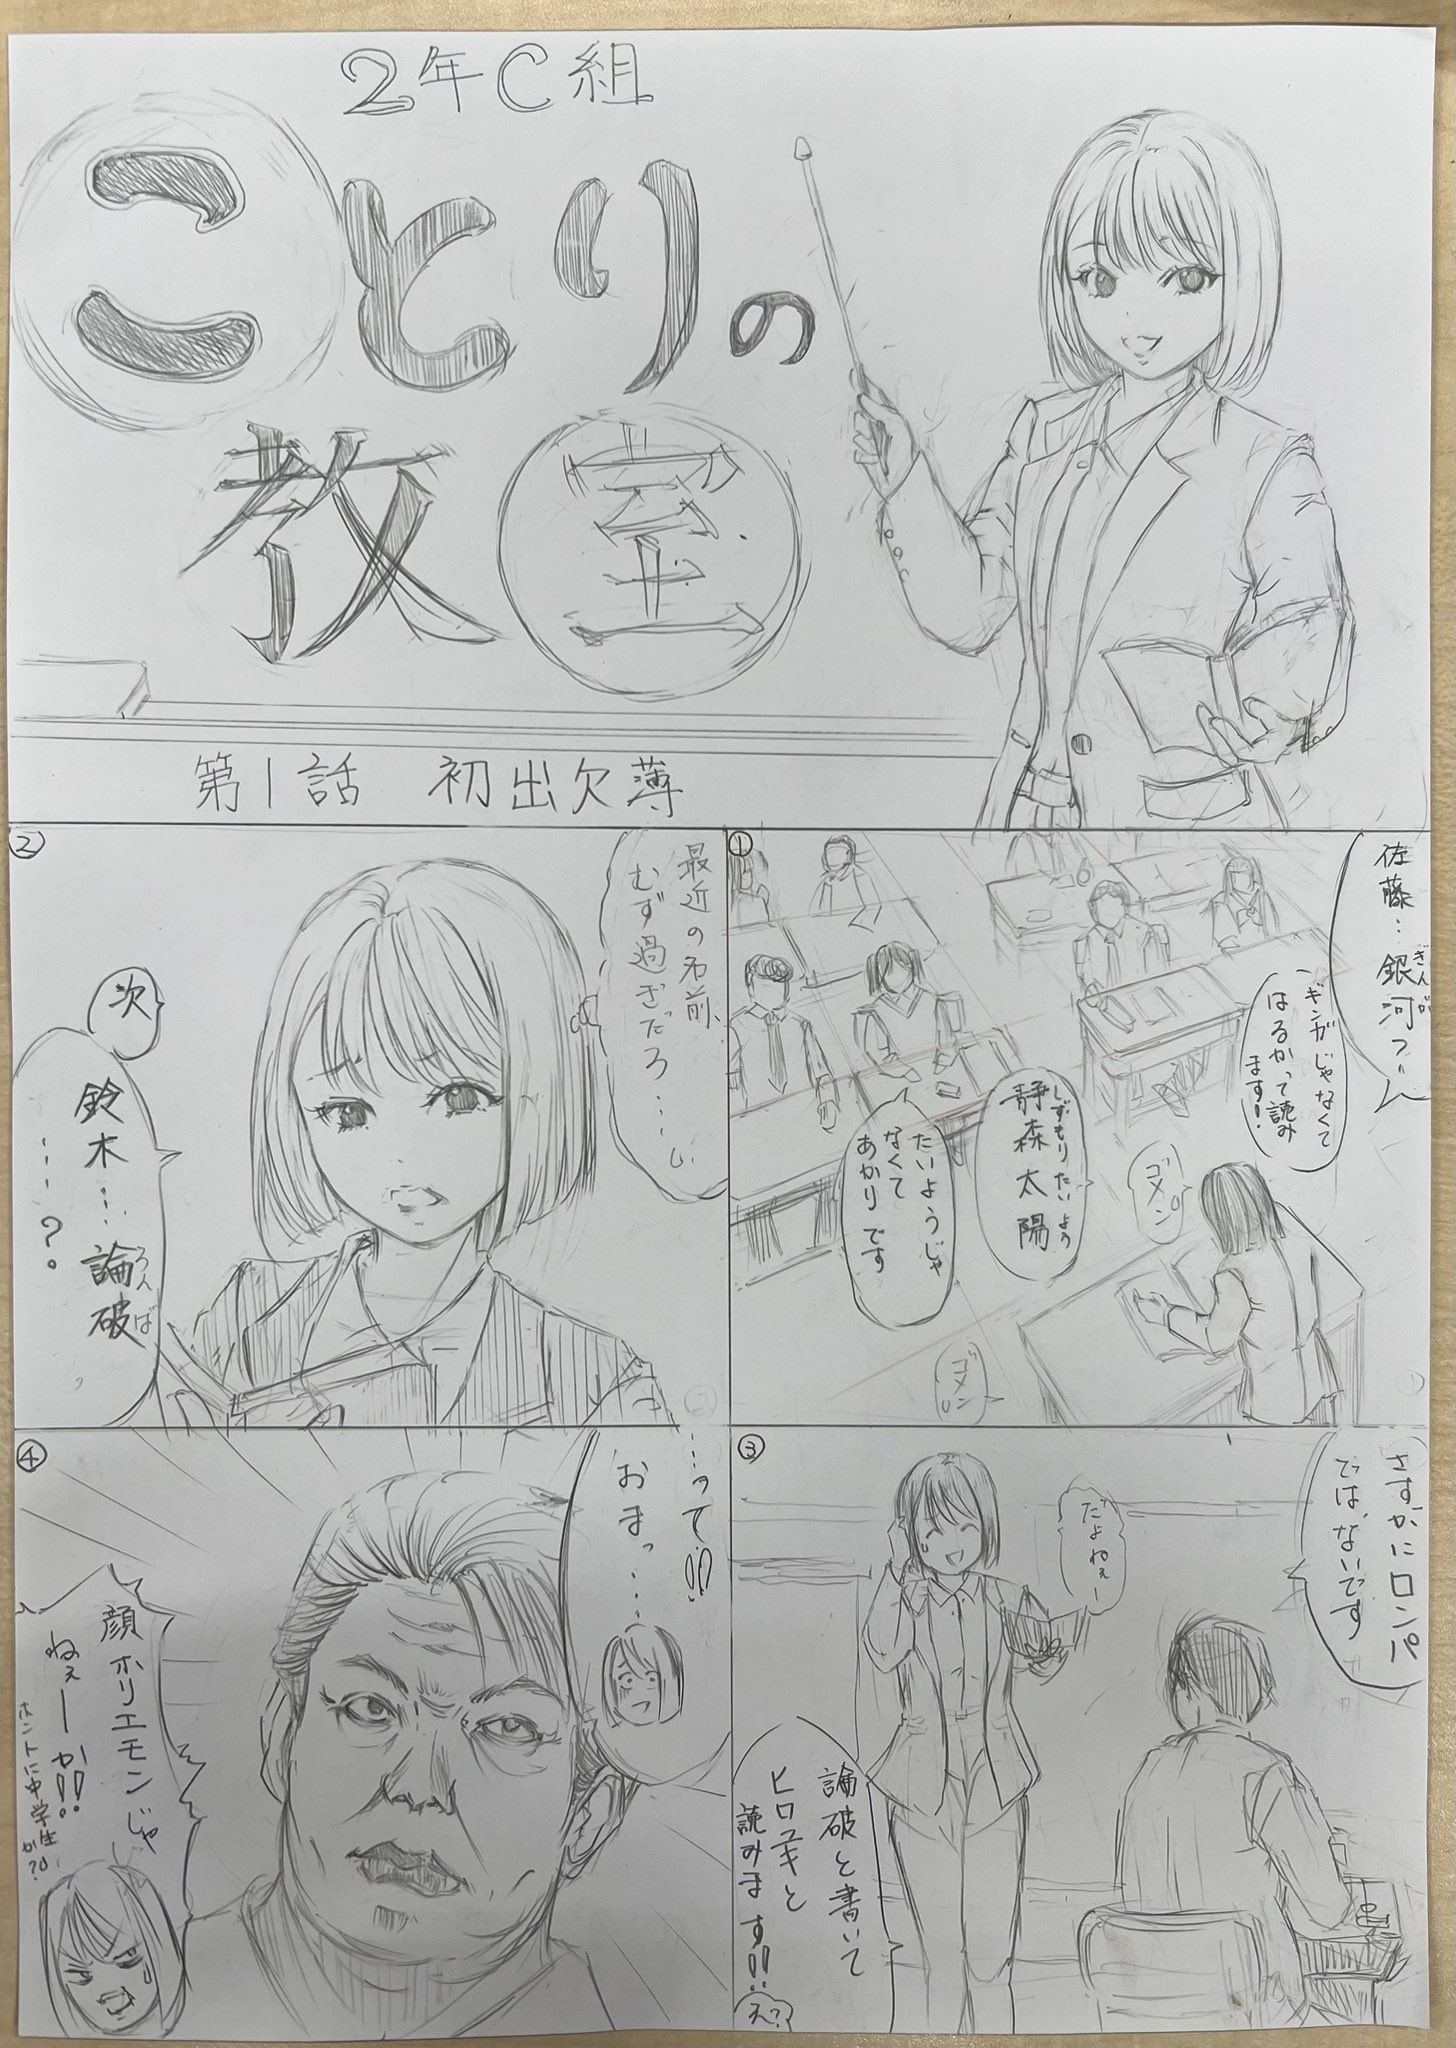 2年C組
ことりの
教室
第1話 初出欠薄
①
佐藤…銀河ァ
ぎんが
ギンガじゃなくて
はるかって読み
ます!
ゴメン
静森太陽
しずもりたいよう
たいようじゃ
なくて
あかりです
ゴメン
②
最近の名前、
むず過ぎだろ……
次
鈴木…論破
ろんぱ
……?
③
さすがにロンパ
では、ないです
だよねぇー
論破と書いて
ヒロユキと
読みます!!
え?
④
…って!!
おまっ…
顔ホリエモンじゃ
ねぇーか!!
ホントに中学生
か?